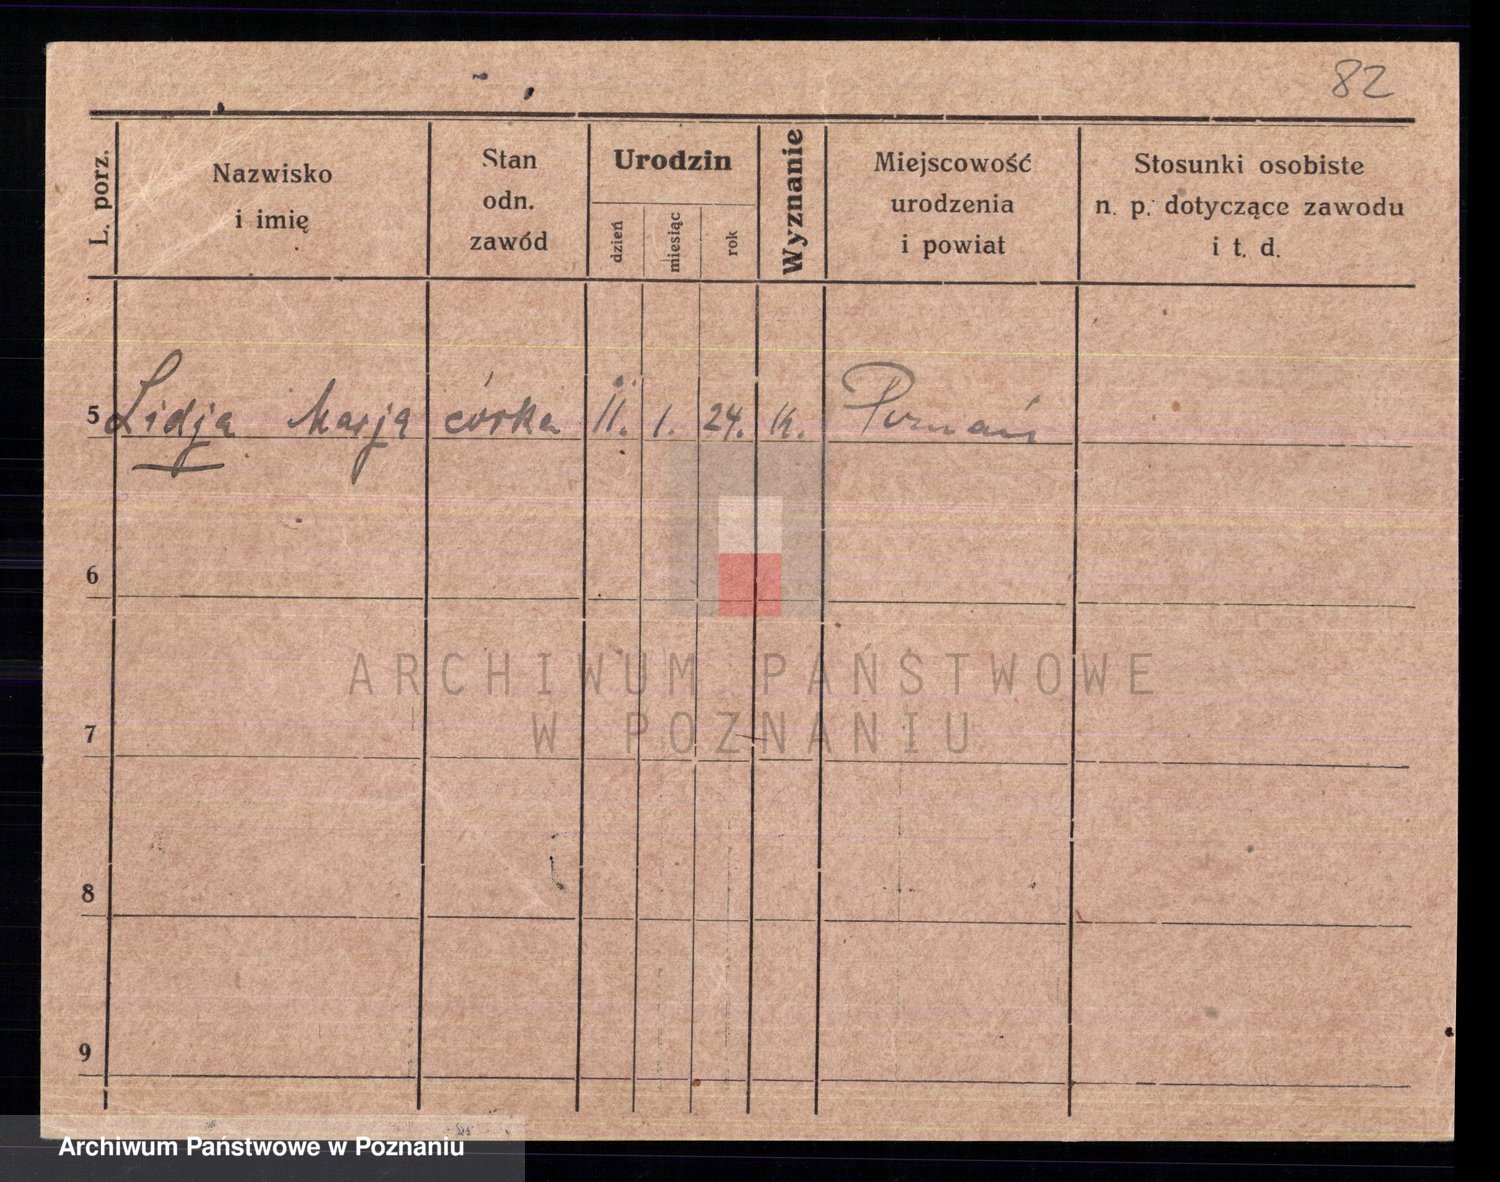 82
L. porz.
Nazwisko
i imię
Stan
odn.
zawód
Urodzin
dzień
miesiąc
rok
Wyznanie
Miejscowość
urodzenia
i powiat
Stosunki osobiste
n. p. dotyczące zawodu
i t. d.
5 Lidja Marja córka 11. 1. 24. k. Poznań
6
7
8
9
ARCHIWUM PAŃSTWOWE
W POZNANIU
Archiwum Państwowe w Poznaniu